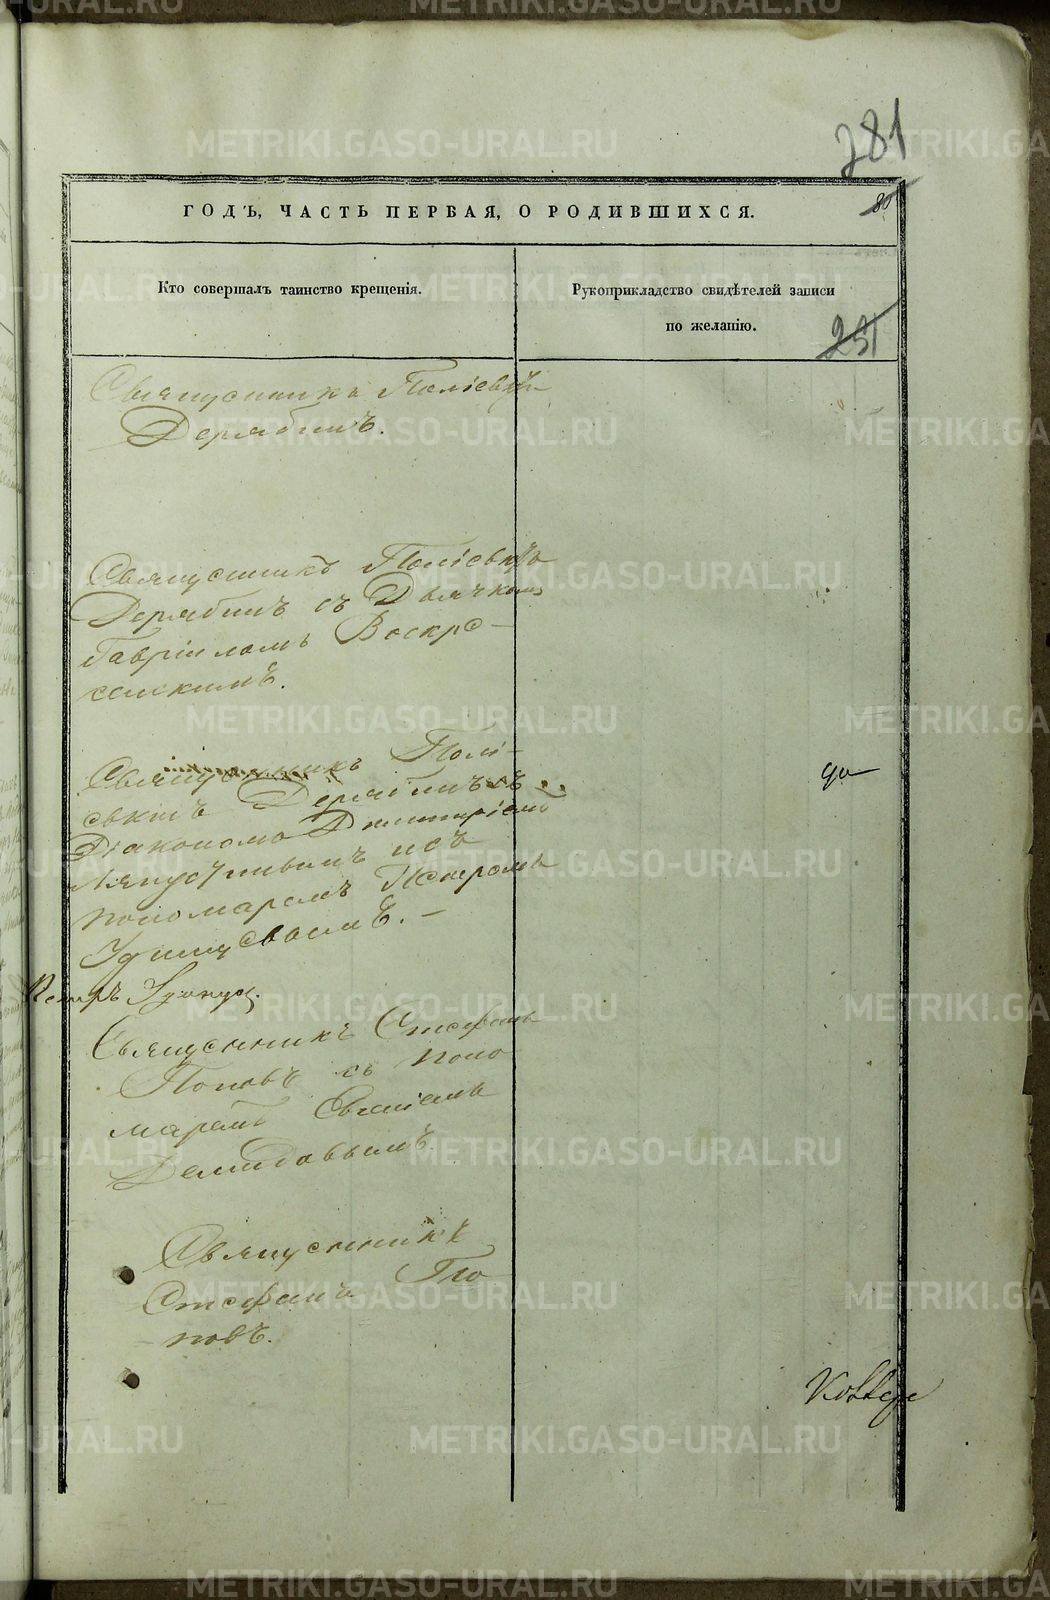 281
80
ГОДЪ, ЧАСТЬ ПЕРВАЯ, О РОДИВШИХСЯ.
Кто совершалъ таинство крещенія.
Рукоприкладство свидѣтелей записи
по желанію.
251
Священникъ Поліевктъ
Дерябинъ.
Священникъ Поліевктъ
Дерябинъ съ Дьячкомъ
Гавріиломъ Воскре-
сенскимъ.
Священникъ Полі-
евктъ Дерябинъ съ
Діакономъ Димитріемъ
Ляпустинымъ и съ
пономаремъ Петромъ
Удинцовымъ. -
Петръ Удинцов.
Священникъ Стефанъ
Поповъ съ поно
маремъ Евгеніемъ
Демидовымъ.
Священникъ
Стефанъ По
повъ.
METRIKI.GASO-URAL.RU